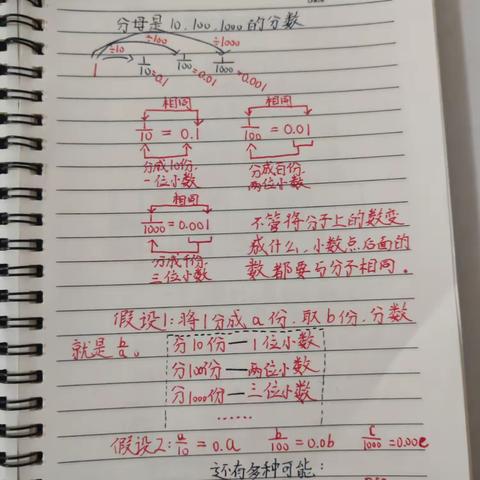 分母是10、100、1000的分数
÷10 ÷100 ÷1000
1 1/10=0.1 1/100=0.01 1/1000=0.001
相同 相同
1/10 = 0.1 1/100 = 0.01
分成10份. 分成百份.
一位小数 两位小数
相同
1/1000 = 0.001
分成千份.
三位小数
不管将分子上的数变
成什么,小数点后面的
数都要与分子相同。
假设1:将1分成a份.取b份.分数
就是b/a。
分10份—1位小数
分100份—两位小数
分1000份—三位小数
……
假设2:a/10=0.a b/100=0.0b c/1000=0.00c
还有多种可能: